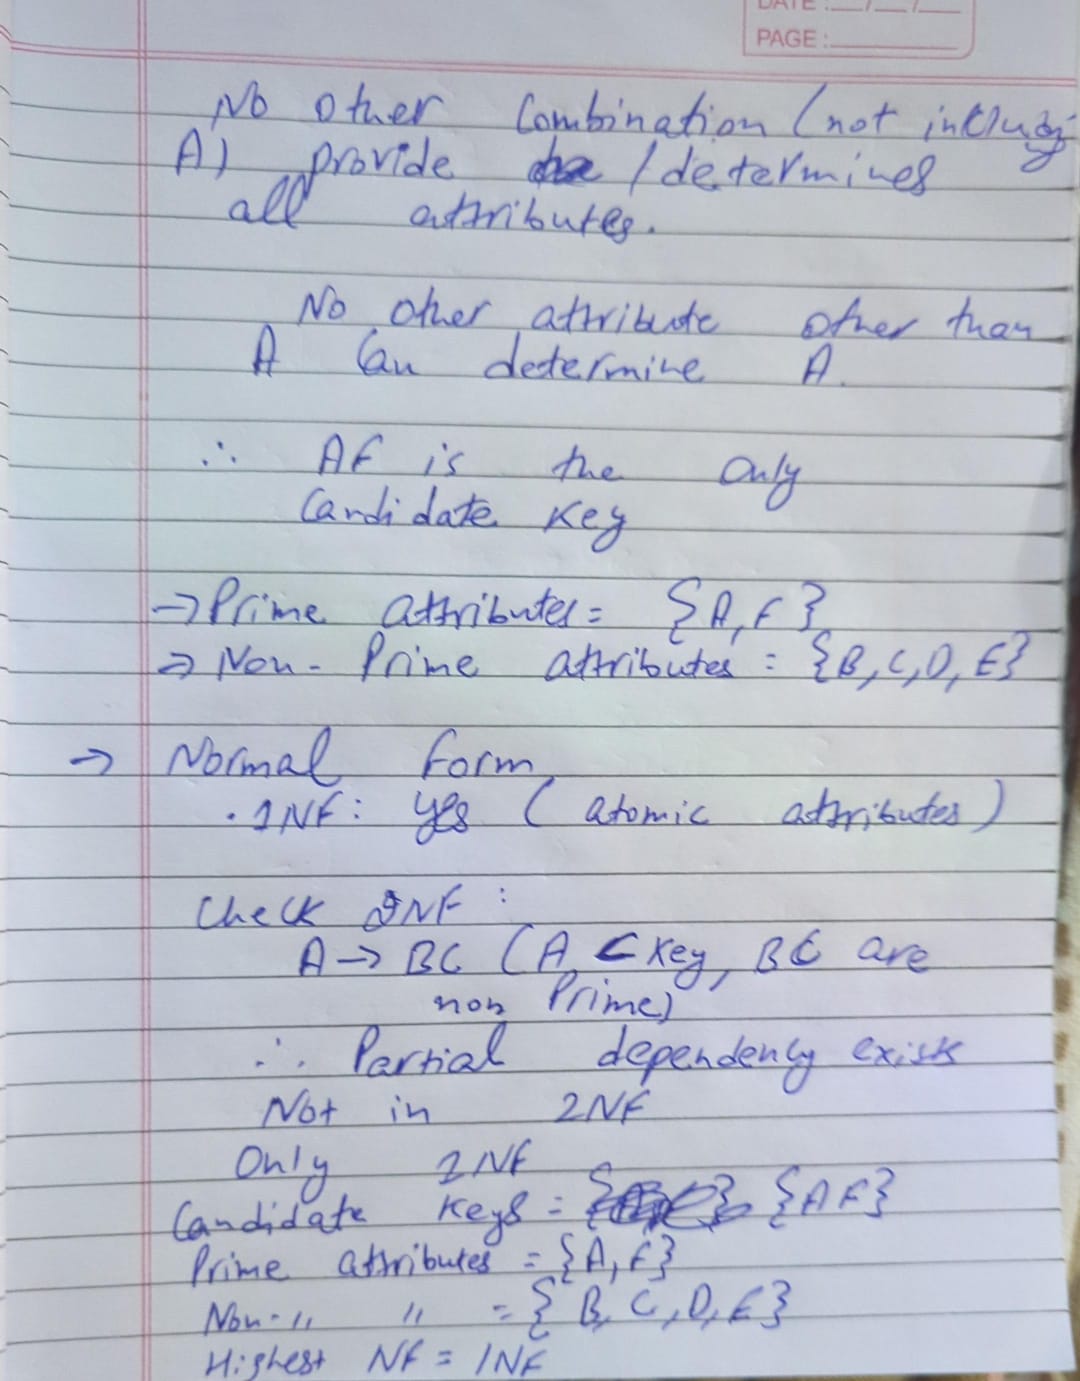 DATE: __/__/__
PAGE:
No other Combination (not including
A) provide /determines
all attributes.
No other attribute other than
A Can determine A.
∴ AF is the only
Candidate Key
→ Prime attributes = {A, F}
⇒ Non-Prime attributes = {B, C, D, E}
→ Normal form
• 1NF: Yes (atomic attributes)
Check 2NF:
A → BC (A ⊂ Key, BC are
non Prime)
∴ Partial dependency exists
Not in 2NF
Only 1NF
Candidate Keys = {AF}
Prime attributes = {A, F}
Non-〃 〃 = {B, C, D, E}
Highest NF = 1NF